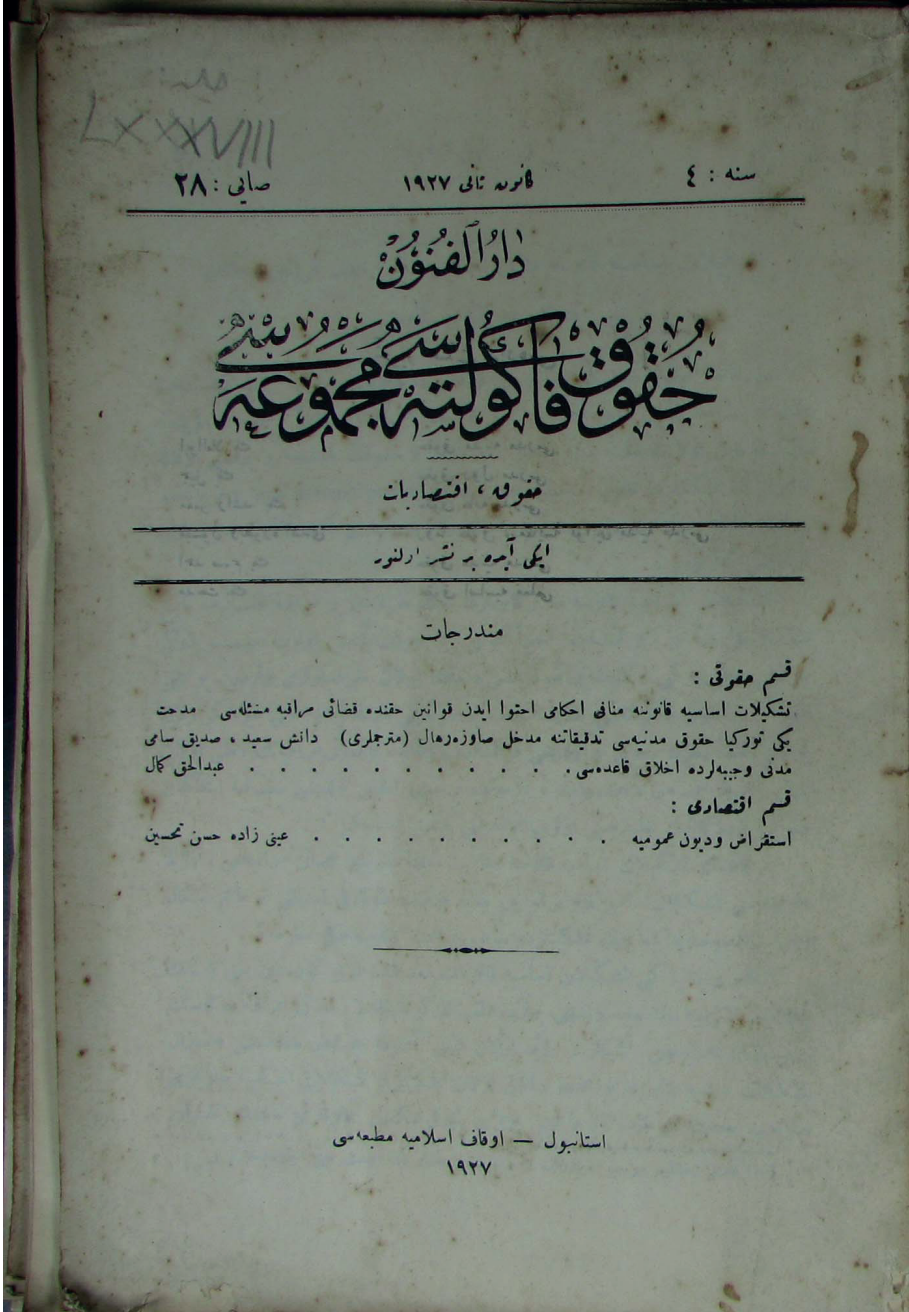 LXXXVIII
سنه : ٤ كانون ثانی ١٩٢٧ صایی : ٢٨
دارالفنون
حقوق فاكولته‌سی مجموعه‌سی
حقوق ، اقتصادیات
ایكی آیده بر نشر اولنور
مندرجات
قسم حقوقی :
تشكیلات اساسیه قانوننه منافی احكامی احتوا ایدن قوانین حقنده قضائی مراقبه مسئله‌سی مدحت
یكی توركیا حقوق مدنیه‌سی تدقیقاتنه مدخل صاوزه‌رهال (مترجملری) دانش سعید ، صدیق سامی
مدنی وجیبه‌لرده اخلاق قاعده‌سی . . . . . . . . . . . . عبدالحق كمال
قسم اقتصادی :
استقراض ودیون عمومیه . . . . . . . . . . عینی زاده حسن تحسین
استانبول — اوقاف اسلامیه مطبعه‌سی
١٩٢٧